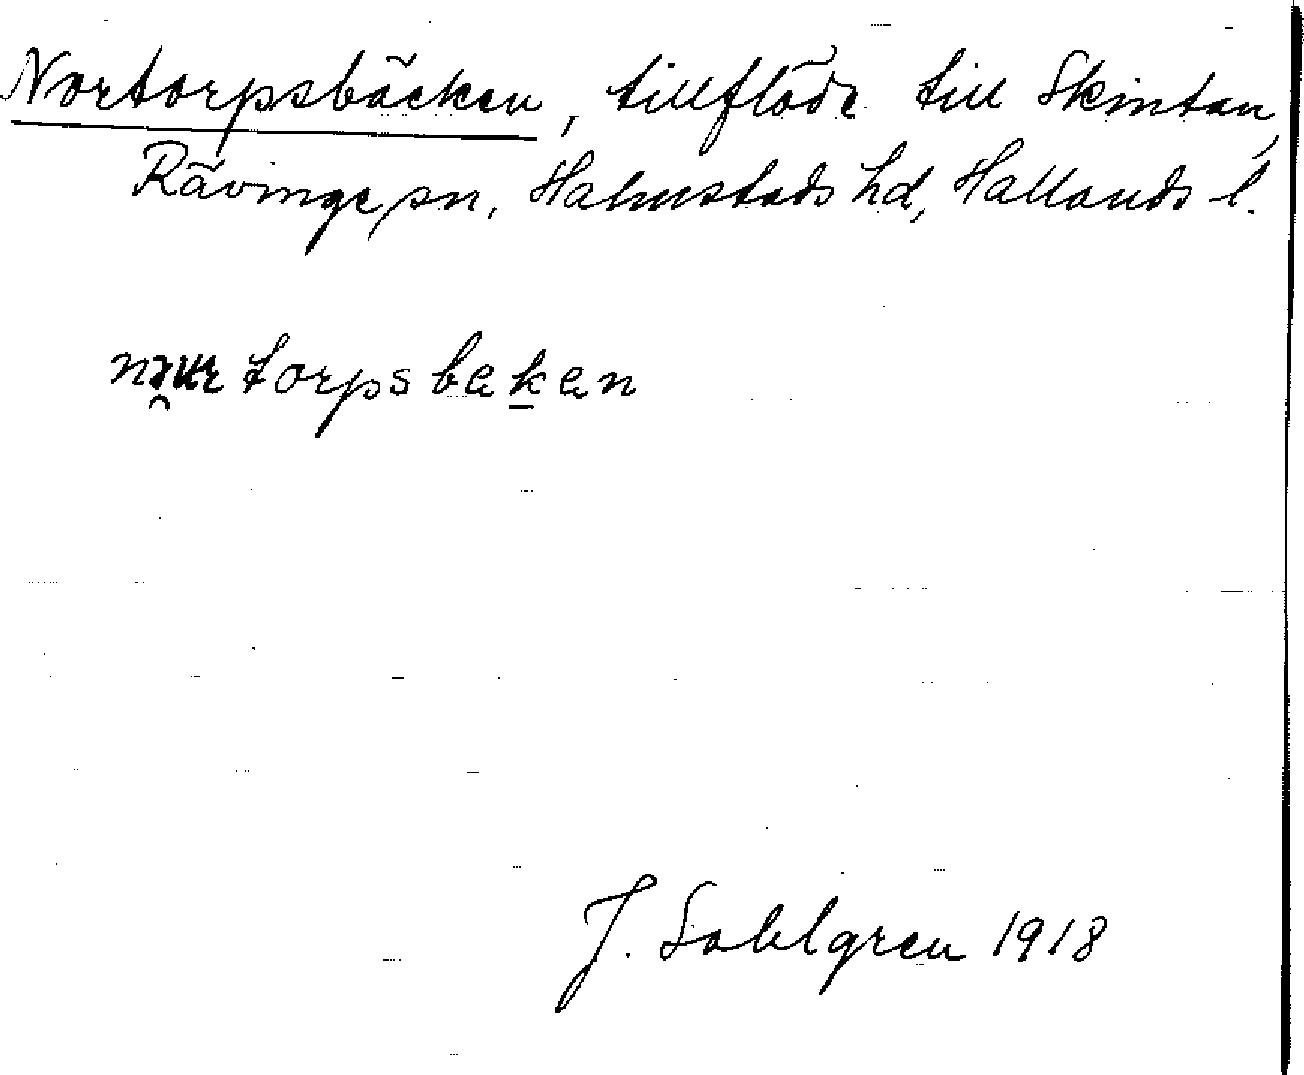 Nortorpsbäcken, tillflöde till Skintan,
Rävinge sn, Halmstads hd, Hallands l.
J. Sahlgren 1918